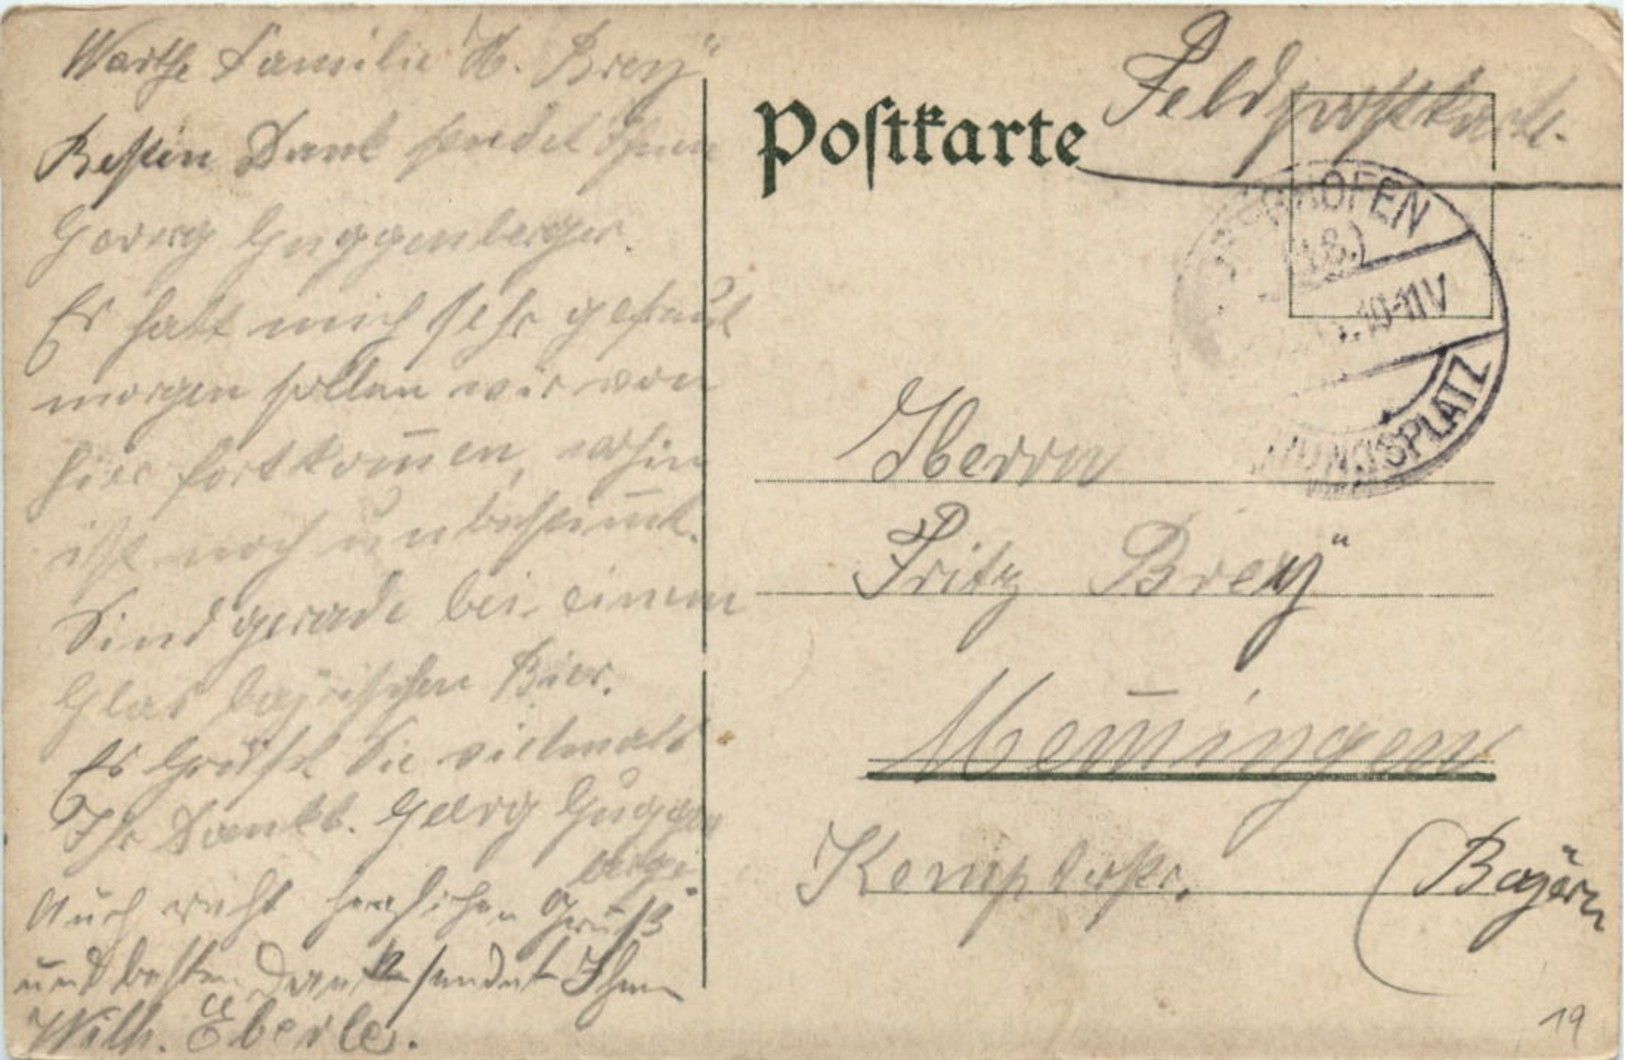 Werthe Familie H. Brey
Besten Dank sendet Ihnen
Georg Guggenberger.
Es hatt mich sehr gefreut
morgen sollen wir von
hier fortkom̄en, wohin
ist noch unbestim̄t.
Sind gerade bei einem
Glas bayrischen Bier.
Es Grüßt Sie vielmals
Ihr Dankb. Georg Guggen
berger
Auch recht herzlichen Gruß
und besten Dank sendet Ihnen
Wilh. Eberle.
Postkarte
Feldpostkarte.
HOFEN
10-11V
UNGSPLATZ
Herrn
Fritz Brey
Mem̄ingen
Kempterstr.
(Bayern
19